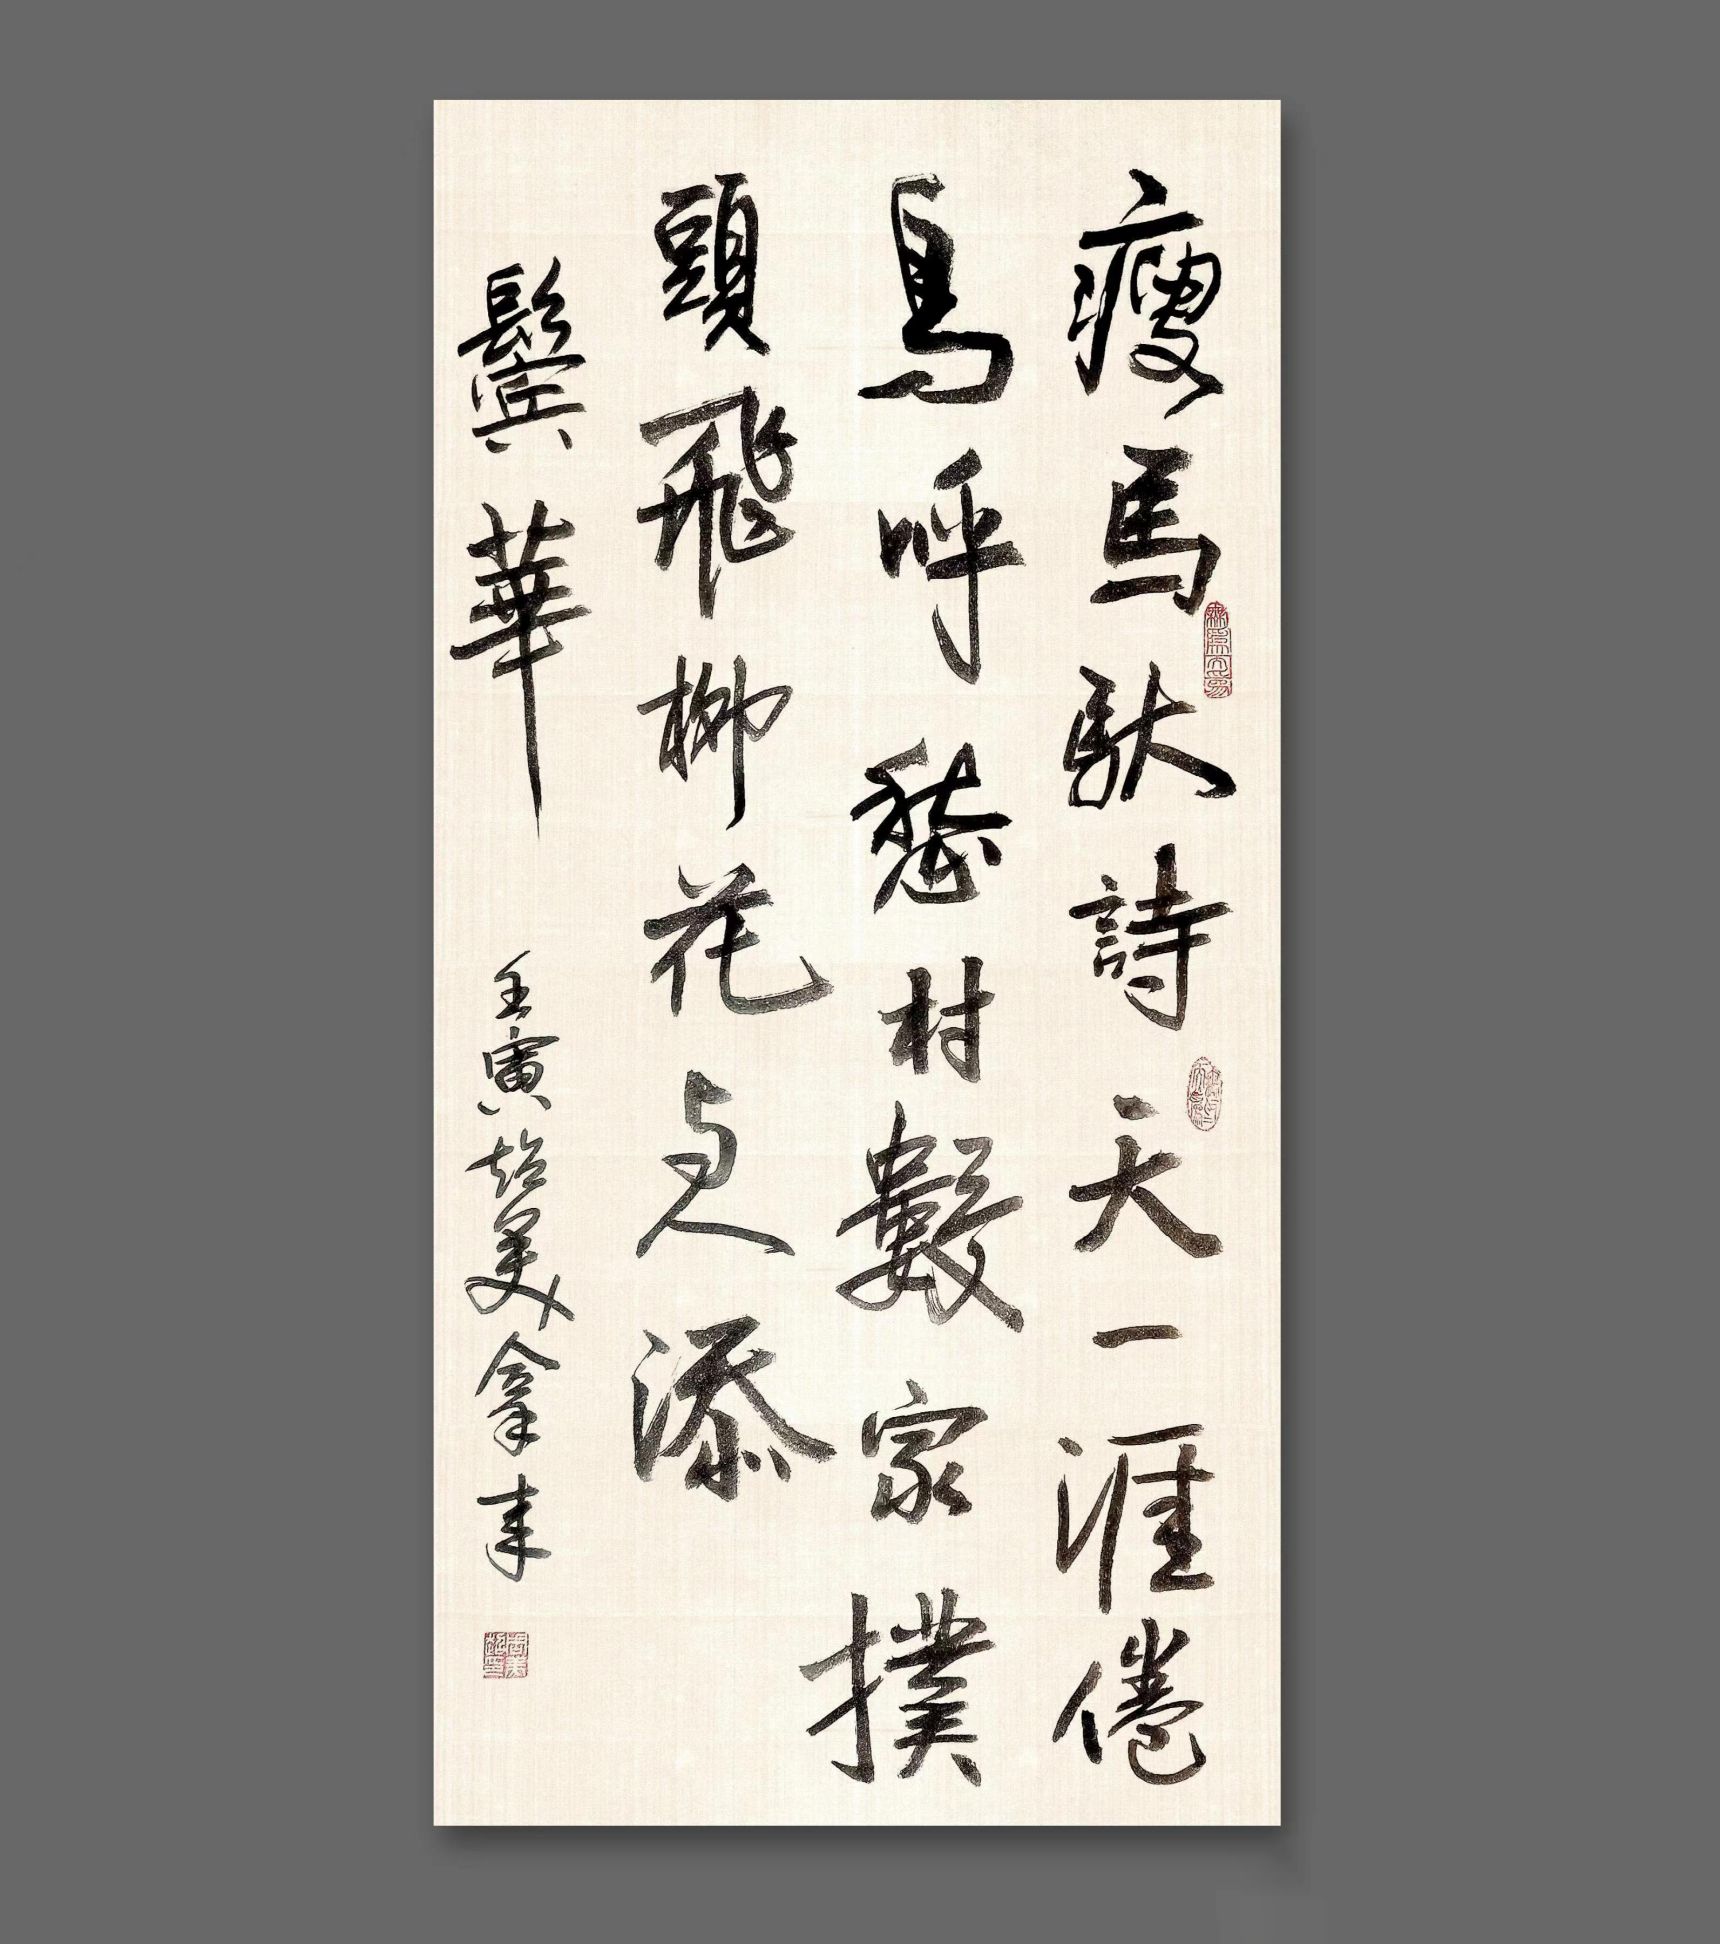 瘦馬馱詩天一涯倦
鳥呼愁村數家撲
頭飛柳花与人添
鬢華
壬寅超美拿來